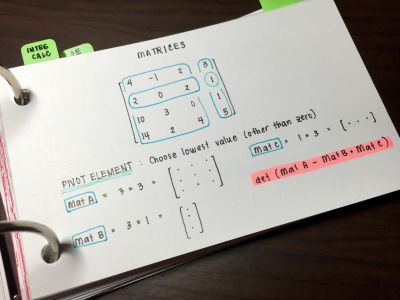 INTEG
CALC
SE
MATRICES
4 -1 2 3
2 0 2 1
10 3 0 1
14 2 4 5
PIVOT ELEMENT : Choose lowest value (other than zero)
Mat A = 3 × 3 = [ ]
Mat C = 1 × 3 = [ · · · ]
Mat B = 3 × 1 = [ ]
det (Mat A - Mat B × Mat C)